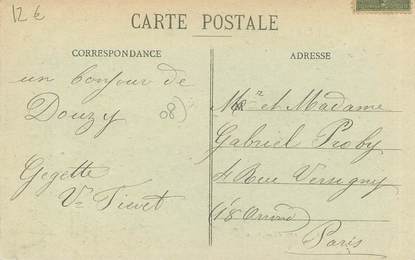 12 €
CARTE POSTALE
CORRESPONDANCE
ADRESSE
un bonjour de
Douzy
08)
Gegette
Vve Tievet
Mr et Madame
Gabriel Proby
4 Rue Versigny
(18 Arrond
Paris